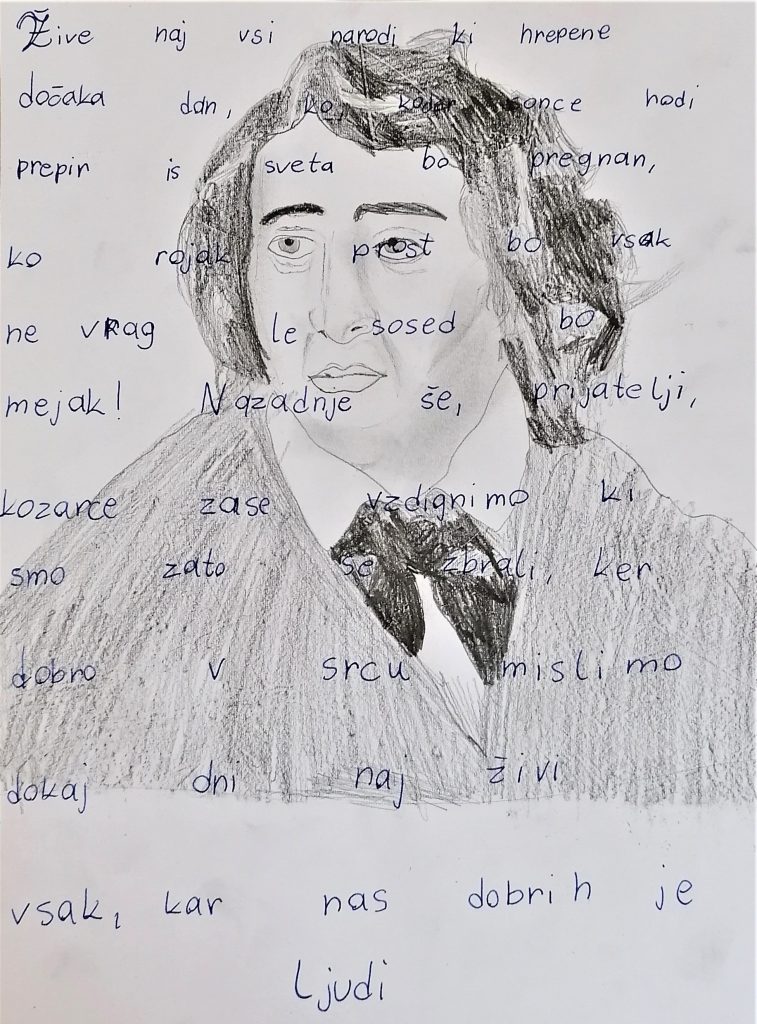 Žive naj vsi narodi ki hrepene
dočaka dan, ko, koder sonce hodi
prepir is sveta bo pregnan,
ko rojak prost bo vsak
ne vrag le sosed bo
mejak! Nazadnje še, prijatelji,
kozarce zase vzdignimo ki
smo zato se zbrali, ker
dobro v srcu mislimo
dokaj dni naj živi
vsak, kar nas dobrih je
Ljudi